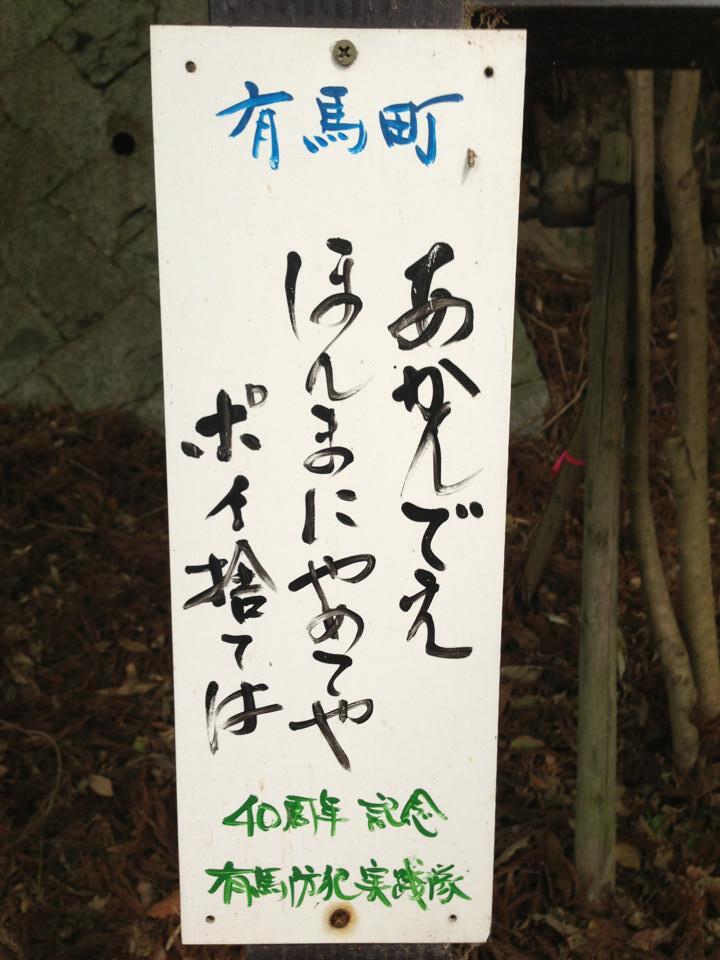 有馬町
あかんでえ
ほんまにやめてや
ポイ捨ては
40周年 記念
有馬防犯実践隊